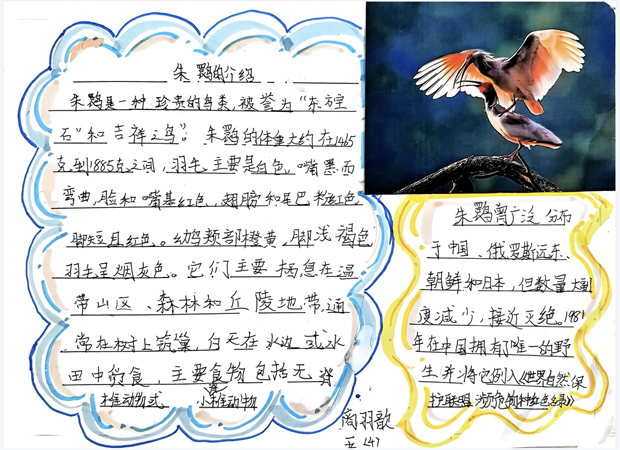 朱鹮的介绍
朱鹮是一种珍贵的鸟类,被誉为“东方宝
石”和吉祥之鸟”。朱鹮的体重大约在1465
克到1885克之间,羽毛主要是白色。嘴黑而
弯曲,脸和嘴基红色,翅膀和尾巴粉红色,
脚短且红色。幼鸟颈部橙黄,脚浅褐色
羽毛呈烟灰色。它们主要栖息在温
带山区、森林和丘陵地带,通
常在树上筑巢,白天在水边或水
田中觅食,主要食物包括无脊
椎动物或小脊椎动物
商羽歆
五(4)
朱鹮曾广泛分布
于中国、俄罗斯远东、
朝鲜和日本,但数量大副
度减少,接近灭绝。1981
年在中国拥有唯一的野
生,并将它例入《世界自然保
护联盟濒危物种红色名录》